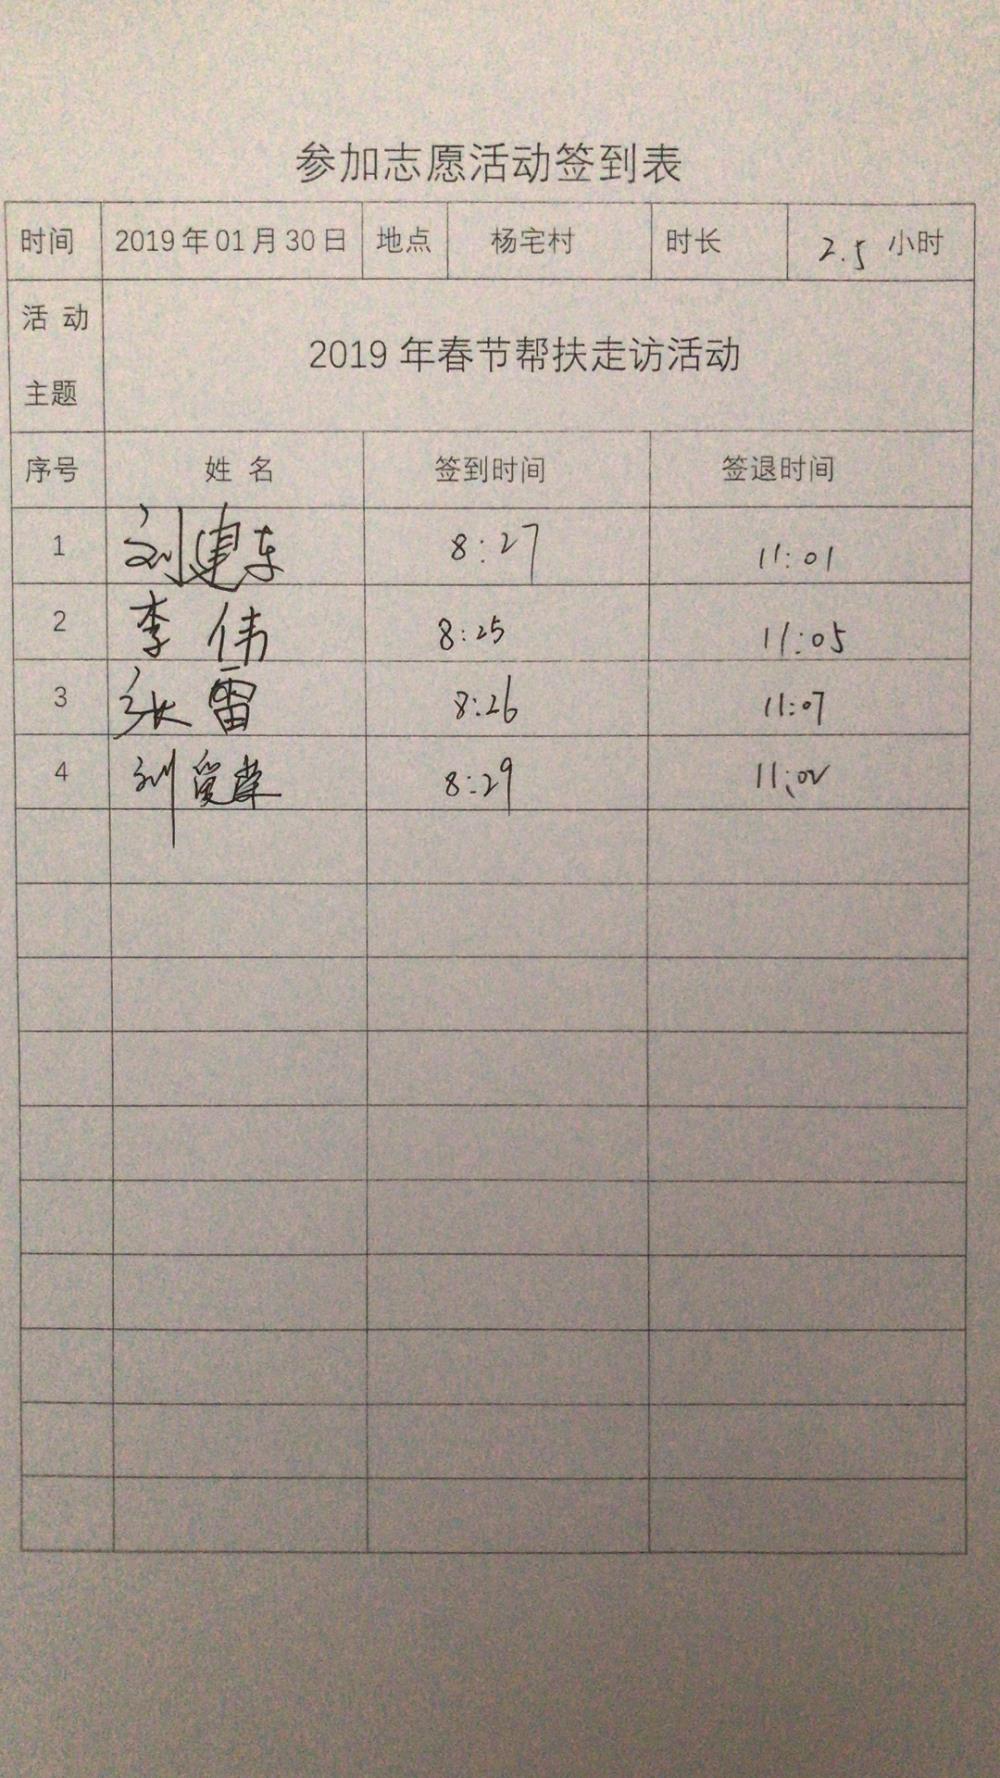 参加志愿活动签到表
时间 2019年01月30日 地点 杨宅村 时长 2.5 小时
活动主题 2019年春节帮扶走访活动
序号 姓名 签到时间 签退时间
1 刘建东 8:27 11:01
2 李伟 8:25 11:05
3 张雷 8:26 11:07
4 刘 8:29 11:02